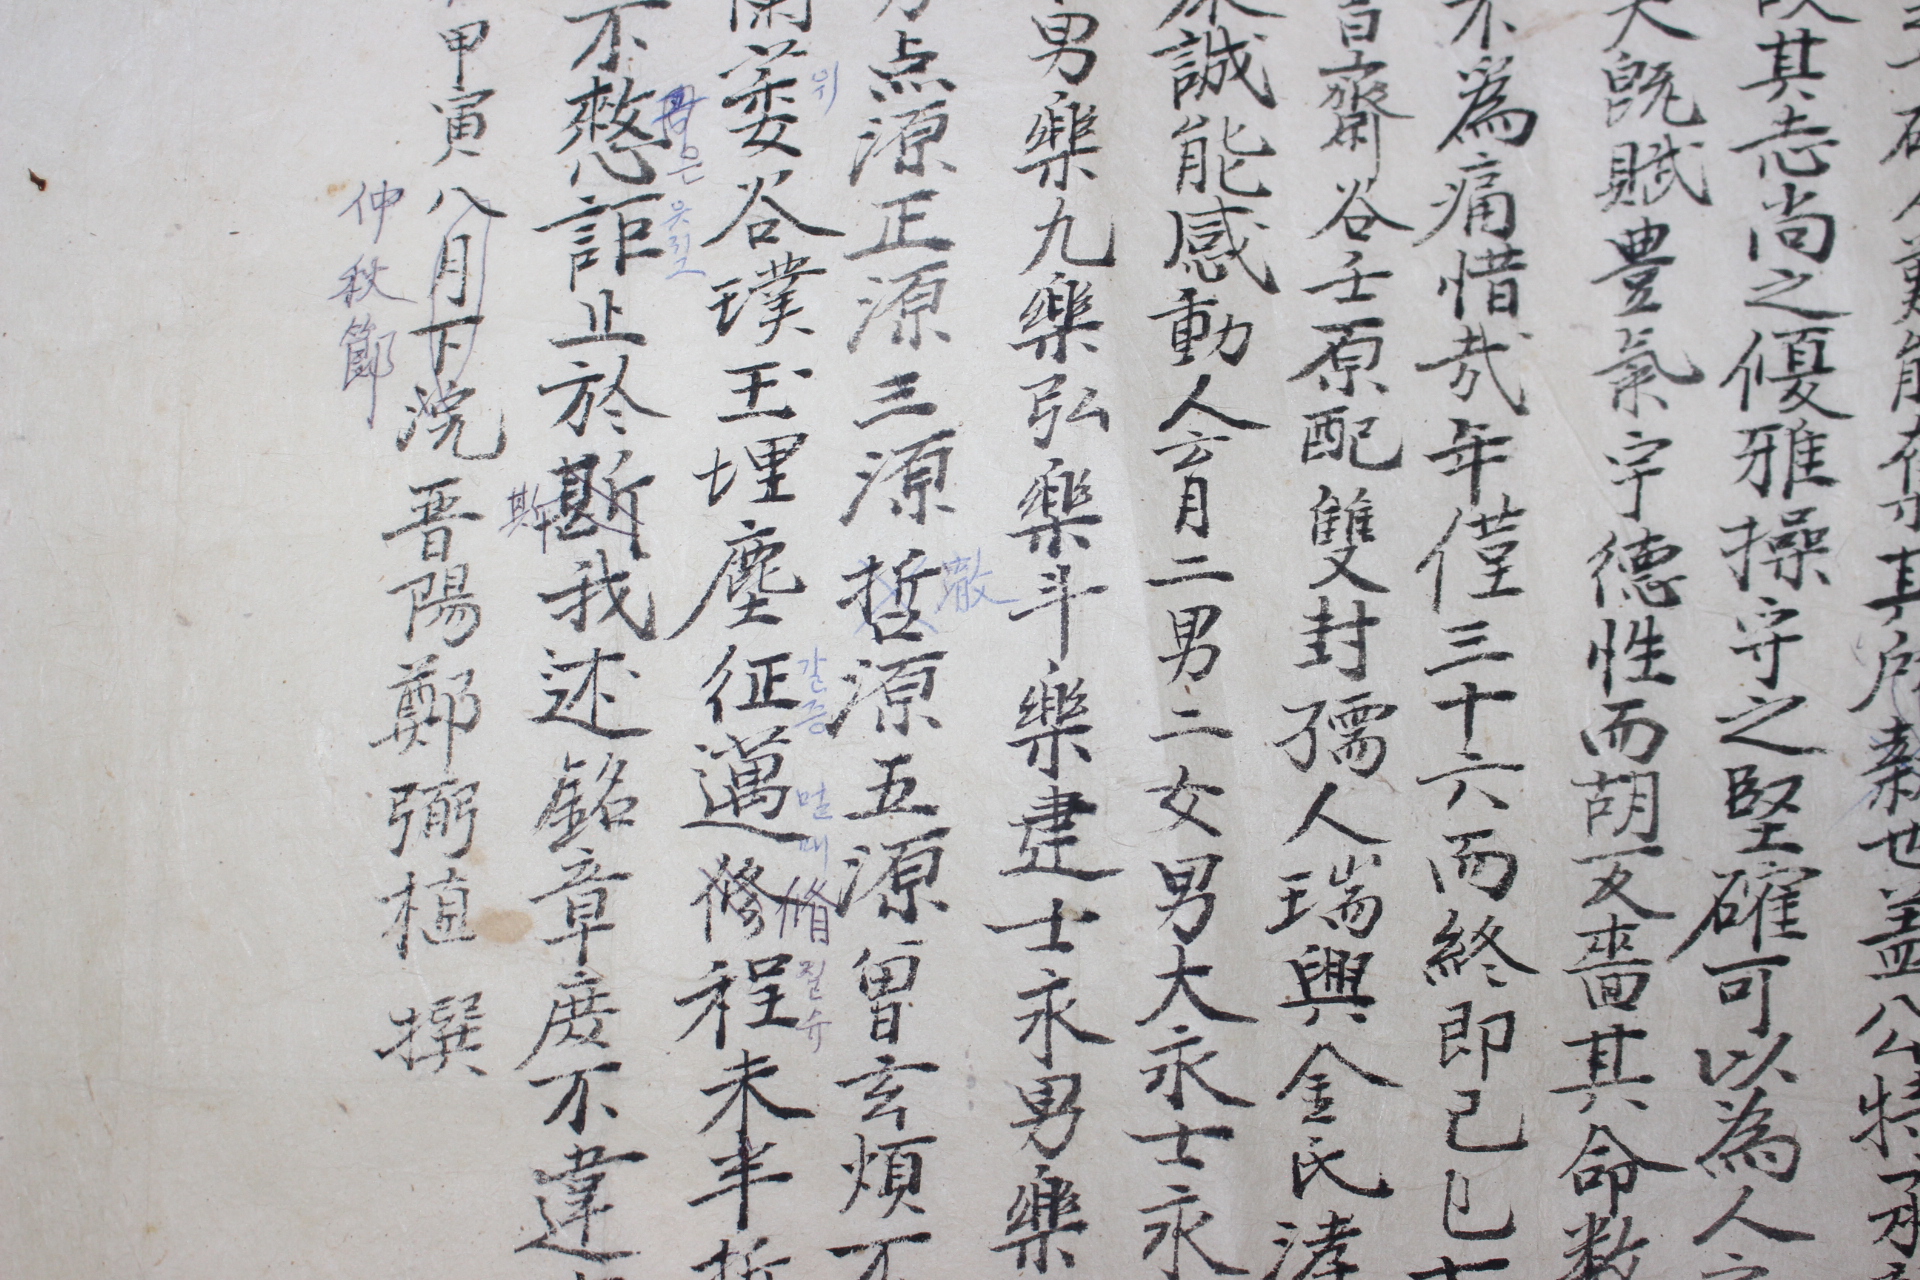 難能
其所
世盖公特承
其志尚之優雅操守之堅確可以為人
天旣賦豊氣宇德性而胡又嗇其命数
不爲痛惜哉年僅三十六而終即己巳十
齋谷壬原配雙封孺人瑞興金氏
誠能感動人育二男二女男大永士永
男樂九樂弘樂斗樂建士永男樂
点源正源三源哲源五源曾玄煩不
徹
萎谷璞玉埋塵征邁修程未半
위
갈 증
멀 매
脩
질 슈
不憗詎止於斯我述銘章庶不違
은
斯
甲寅八月下浣 晋陽鄭弼植 撰
仲秋節